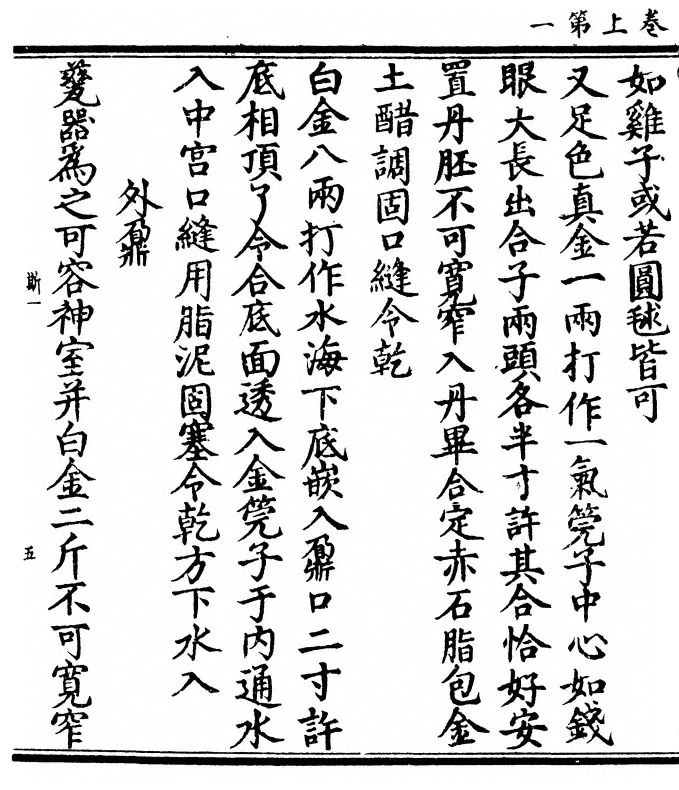 卷上第一
如雞子或若圓毬皆可
又足色真金一兩打作一氣筦子中心如錢
眼大長出合子兩頭各半寸許其合恰好安
置丹胚不可寬窄入丹畢合定赤石脂包金
土醋調固口縫令乾
白金八兩打作水海下底嵌入鼎口二寸許
底相頂了令合底面透入金筦子于內通水
入中宮口縫用脂泥固塞令乾方下水入
外鼎
甆器為之可容神室并白金二斤不可寬窄
斯一
五